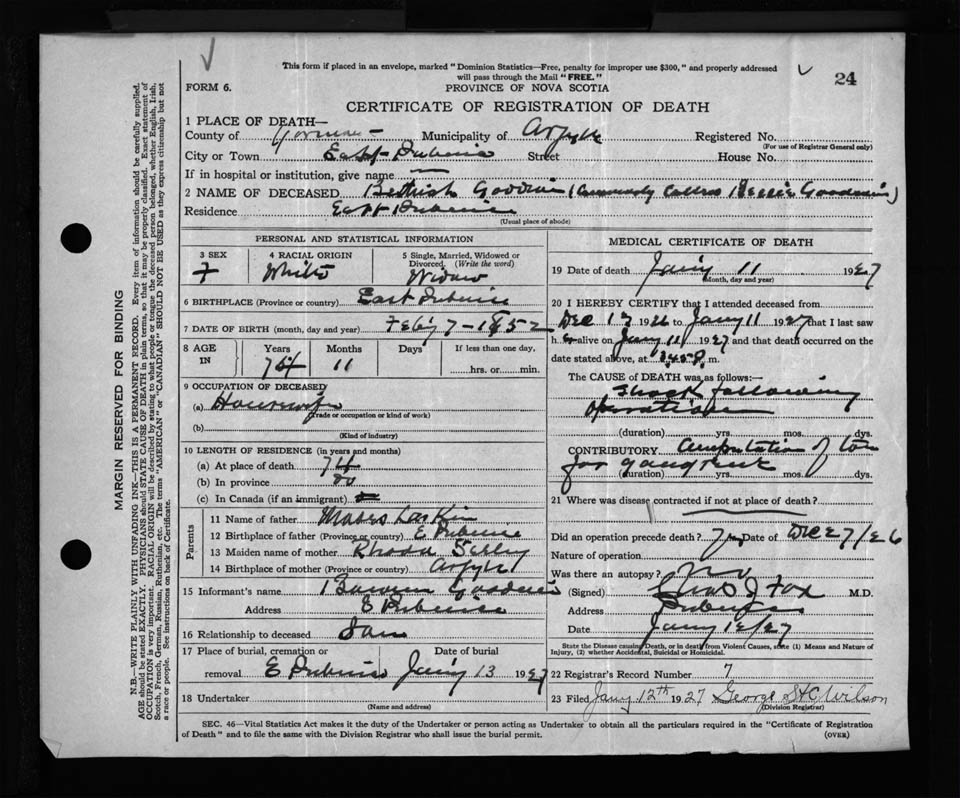 This form if placed in an envelope, marked "Dominion Statistics—Free, penalty for improper use $300," and properly addressed
will pass through the Mail "FREE."
24
FORM 6.
PROVINCE OF NOVA SCOTIA
CERTIFICATE OF REGISTRATION OF DEATH
1 PLACE OF DEATH—
County of Municipality of Argyle Registered No.
(For use of Registrar General only)
City or Town East Pubnico Street House No.
If in hospital or institution, give name
2 NAME OF DECEASED Goodwin (Commonly Called Goodwin)
Residence East Pubnico
(Usual place of abode)
PERSONAL AND STATISTICAL INFORMATION
3 SEX
F
4 RACIAL ORIGIN
White
5 Single, Married, Widowed or Divorced. (Write the word)
Widow
6 BIRTHPLACE (Province or country) East Pubnico
7 DATE OF BIRTH (month, day and year) Feby 7-1852
8 AGE IN
Years Months Days If less than one day,
74 11 hrs. or min.
9 OCCUPATION OF DECEASED
(a) Housewife
(Trade or occupation or kind of work)
(b)
(Kind of industry)
10 LENGTH OF RESIDENCE (in years and months)
(a) At place of death 74
(b) In province do
(c) In Canada (if an immigrant)
Parents
11 Name of father Moses Larkin
12 Birthplace of father (Province or country) E Pubnico
13 Maiden name of mother Rhoda
14 Birthplace of mother (Province or country) Argyle
15 Informant's name Goodwin
Address E Pubnico
16 Relationship to deceased Son
17 Place of burial, cremation or Date of burial
removal E Pubnico Jany 13 1927
18 Undertaker
(Name and address)
MEDICAL CERTIFICATE OF DEATH
19 Date of death Jany 11 1927
(Month, day and year)
20 I HEREBY CERTIFY that I attended deceased from
Dec 1926 to Jany 11 1927 that I last saw
h er alive on Jany 11 1927 and that death occurred on the
date stated above, at m.
The CAUSE of DEATH was as follows:—
Shock following
operation
(duration) yrs. mos. dys.
CONTRIBUTORY Amputation of toe
for gangrene
(duration) yrs. mos. dys.
21 Where was disease contracted if not at place of death?
Did an operation precede death? Yes Date of Dec 27/26
Nature of operation
Was there an autopsy? No
(Signed) J Fox M.D.
Address Pubnico
Date Jany 12/27
State the Disease causing Death, or in death from Violent Causes, state (1) Means and Nature of
Injury, (2) whether Accidental, Suicidal or Homicidal.
22 Registrar's Record Number 7
23 Filed Jany 12th 1927 George St C Wilson
(Division Registrar)
SEC. 46—Vital Statistics Act makes it the duty of the Undertaker or person acting as Undertaker to obtain all the particulars required in the "Certificate of Registration
of Death" and to file the same with the Division Registrar who shall issue the burial permit.
(OVER)
MARGIN RESERVED FOR BINDING
N.B.—WRITE PLAINLY WITH UNFADING INK—THIS IS A PERMANENT RECORD. Every item of information should be carefully supplied.
AGE should be stated EXACTLY. PHYSICIANS should STATE CAUSE OF DEATH in plain terms, so that it may be properly classified. Exact statement of
OCCUPATION is very important. RACIAL ORIGIN will be described by stating to what people or tongue the deceased person belonged, whether English, Irish,
Scotch, French, German, Russian, Ruthenian, etc. The terms "AMERICAN" or "CANADIAN" SHOULD NOT BE USED as they express citizenship but not
a race or people. See instructions on back of Certificate.